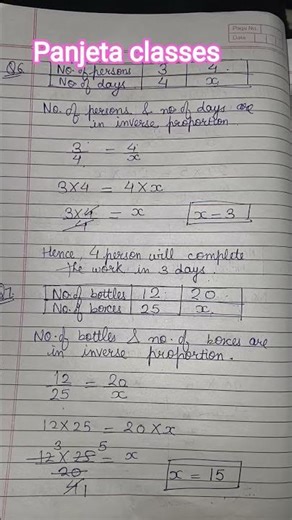 Page No.
Date
Panjeta classes
Q6
No. of persons 3 4
No. of days 4 x
No. of persons & no. of days are
in inverse proportion
3/4 = 4/x
3×4 = 4×x
3×4/4 = x x=3
Hence, 4 person will complete
the work in 3 days.
Q7
No. of bottles 12 20
No. of boxes 25 x
No. of bottles & no. of boxes are
in inverse proportion.
12/25 = 20/x
12×25 = 20×x
12 3 × 25 5 / 20 4 1 = x
x = 15